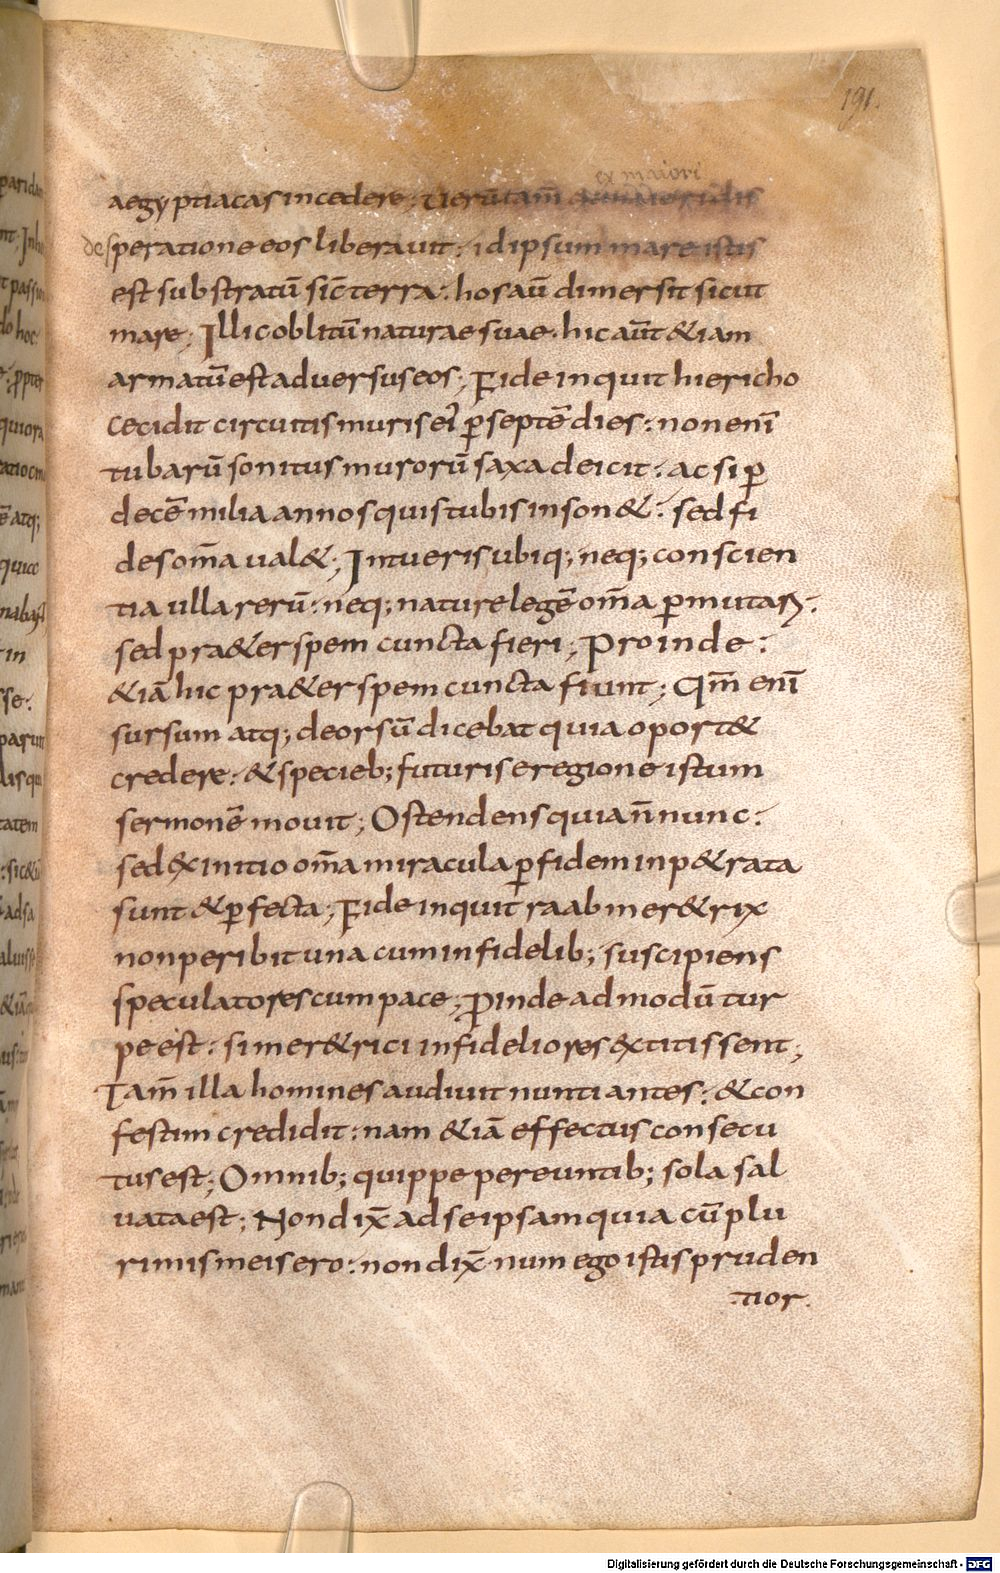 191.
ex maiori
aegyptiacas incedere; Uerūtam̄
desperatione eos liberauit: idipsum mare istis
est substratū sic̄ terra: hos aū dimersit sicut
mare; Illic oblitū naturae suae. hic aūt &iam
armatū est aduersus eos; Fide inquit hiericho
cecidit circuitis muris ei᷒ ꝑ septē dies: non enī
tubarū sonitus murorū saxa deicit: ac si ꝑ
decē milia annos quis tubis inson&: sed fi
des om̄a ual&; Intueris ubiq; neq; conscien
tia ulla rerū: neq; nature legē om̄a ꝑmutaꝶ:
sed pra&er spem cuncta fieri; Proinde:
&iā hic pra&er spem cuncta fiunt; Qm̄ enī
sursum atq; deorsū dicebat quia oport&
credere: & specieb; futuris eregione istum
sermonē mouit; Ostendens quia n̄ nunc:
sed ex initio om̄a miracula ꝑ fidem inp&rata
sunt & ꝑfecta; Fide inquit raab mer&rix
non peribit una cum infidelib; suscipiens
speculatores cum pace; ꝓinde admodū tur
pe est: si mer&rici infideliores extitissent;
Tam̄ illa homines audiuit nuntiantes: & con
festim credidit: nam &iā effectus consecu
tus est; Omnib; quippe pereuntib; sola sal
uata est; Non dix̄ ad se ipsam quia cū plu
rimis meis ero: non dix̄ num ego istis pruden
tior.
Digitalisierung gefördert durch die Deutsche Forschungsgemeinschaft - DFG